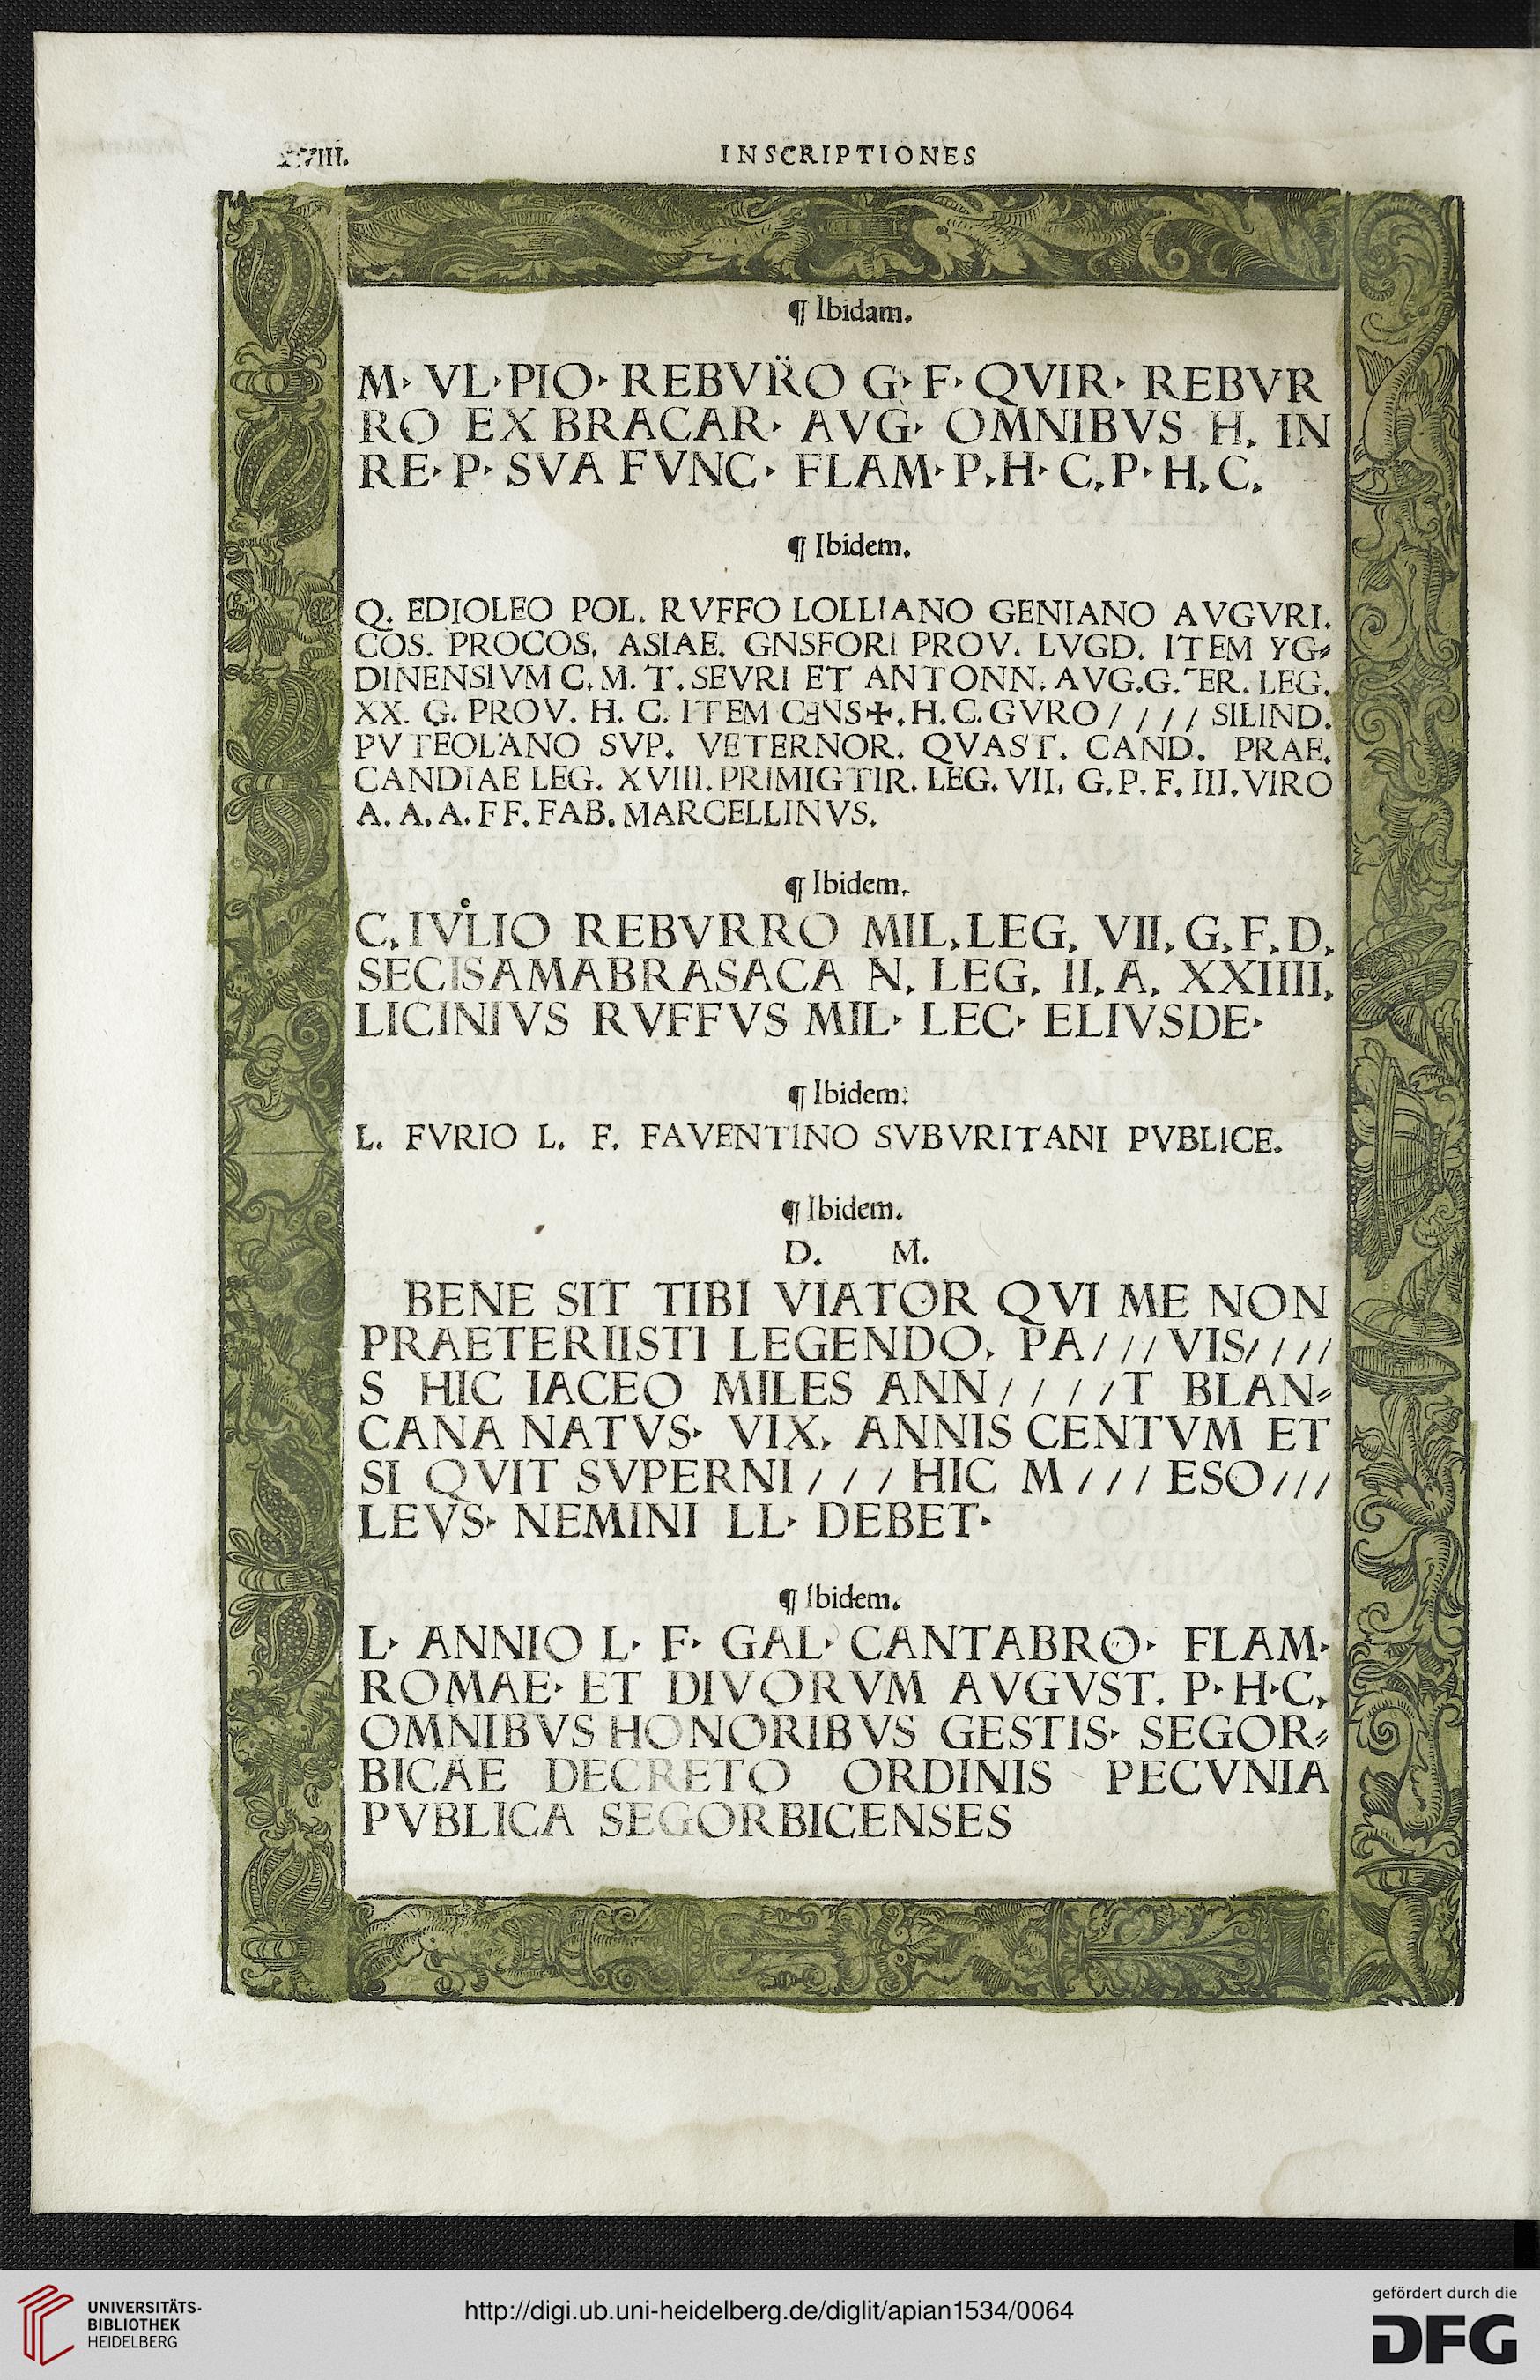 INSCRIPTIONES
¶ Ibidam.
M. VL. PIO. REBVR̈O G. F. QVIR. REBVR
RO EX BRACAR. AVG. OMNIBVS H. IN
RE. P. SVA FVNC. FLAM. P. H. C. P. H. C.
¶ Ibidem.
Q. EDIOLEO POL. RVFFO LOLLIANO GENIANO AVGVRI.
COS. PROCOS. ASIAE. GNSFORI PROV. LVGD. ITEM YG⸗
DINENSIVM C. M. T. SEVRI ET ANTONN. AVG.G. TER. LEG.
XX. G. PROV. H. C. ITEM CƎNS✚. H. C. GVRO / / / / SILIND.
PVTEOLANO SVP. VETERNOR. QVAST. CAND. PRAE.
CANDIAE LEG. XVIII. PRIMIGTIR. LEG. VII. G. P. F. III. VIRO
A. A. A. FF. FAB. MARCELLINVS.
¶ Ibidem.
C. IVLIO REBVRRO MIL. LEG. VII. G. F. D.
SECISAMABRASACA N. LEG. II. A. XXIIII.
LICINIVS RVFFVS MIL. LEC. ELIVSDE.
¶ Ibidem:
L. FVRIO L. F. FAVENTINO SVBVRITANI PVBLICE.
¶ Ibidem.
D. M.
BENE SIT TIBI VIATOR QVI ME NON
PRAETERIISTI LEGENDO. PA / / / VIS / / / /
S HIC IACEO MILES ANN / / / / T BLAN⸗
CANA NATVS. VIX. ANNIS CENTVM ET
SI QVIT SVPERNI / / / HIC M / / / ESO / / /
LEVS. NEMINI LL. DEBET.
¶ Ibidem.
L. ANNIO L. F. GAL. CANTABRO. FLAM.
ROMAE. ET DIVORVM AVGVST. P. H. C.
OMNIBVS HONORIBVS GESTIS. SEGOR⸗
BICAE DECRETO ORDINIS PECVNIA
PVBLICA SEGORBICENSES
UNIVERSITÄTS-
BIBLIOTHEK
HEIDELBERG
http://digi.ub.uni-heidelberg.de/diglit/apian1534/0064
gefördert durch die
DFG